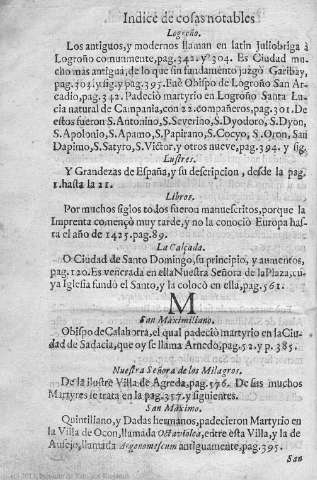 Indice de cosas notables
Logroño.
Los antiguos, y modernos llaman en latin Juliobriga à
Logroño comunmente, pag. 342. y 304. Es Ciudad mu-
cho mas antigua, de lo que sin fundamento juzgò Garibay,
pag. 303. y sig. y pag. 395. Fuè Obispo de Logroño San Ar-
cadio, pag. 342. Padeciò martyrio en Logroño Santa Lu-
cia natural de Campania, con 22. compañeros, pag. 301. De
estos fueron S. Antonino, S. Severino, S. Dyodoro, S. Dyon,
S. Apolonio, S. Apamo, S. Papirano, S. Cocyo, S. Oron, San
Dapimo, S. Satyro, S. Victor, y otros nueve, pag. 394. y sig.
Lustres.
Y Grandezas de España, y su descripcion, desde la pag.
1. hasta la 21.
Libros.
Por muchos siglos todos fueron manuescritos, porque la
Imprenta comencò muy tarde, y no la conociò Europa has-
ta el año de 1425. pag. 89.
La Calçada.
O Ciudad de Santo Domingo, su principio, y aumentos,
pag. 120. Es venerada en ella Nuestra Señora de la Plaza, cu-
ya Iglesia fundò el Santo, y la colocò en ella, pag. 561.
M
San Maximiliano.
Obispo de Calahorra, el qual padeciò martyrio en la Ciu-
dad de Sadacia, que oy se llama Arnedo, pag. 52. y p. 385.
Nuestra Señora de los Milagros.
De la ilustre Villa de Agreda, pag. 576. De sus muchos
Martyres se trata en la pag. 357. y siguientes.
San Maximo.
Quintiliano, y Dadas hermanos, padecieron Martyrio en
la Villa de Ocon, llamada Octaviolca, entre esta Villa, y la de
Ausejo, llamada antiguamente, pag. 395.
San